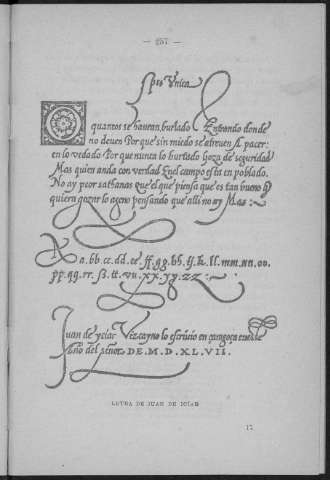 — 257 —
Spés Vnica
O quantos se hauran burlado Entrando donde
no deuen Porque sin miedo se atreuen A pacer
en lo vedado Porque nunca lo hurtado Goza de seguridad
Mas quien anda con verdad En el campo esta en poblado.
No ay peor sathanas que el que piensa que es tan bueno q̃
quiera gozar lo ageno pensando que alli no ay Mas :~
A a. bb. cc. dd. ee ff. gg. hh. ij. k. ll. mm. nn. oo.
pp. qq. rr. ss. tt. vu. xx. yy. zz :~
Juan de yciar Vizcayno lo escriuio en çaragoça
año del señor DE. M. D. XL. VII.
LETRA DE JUAN DE ICIAR
17